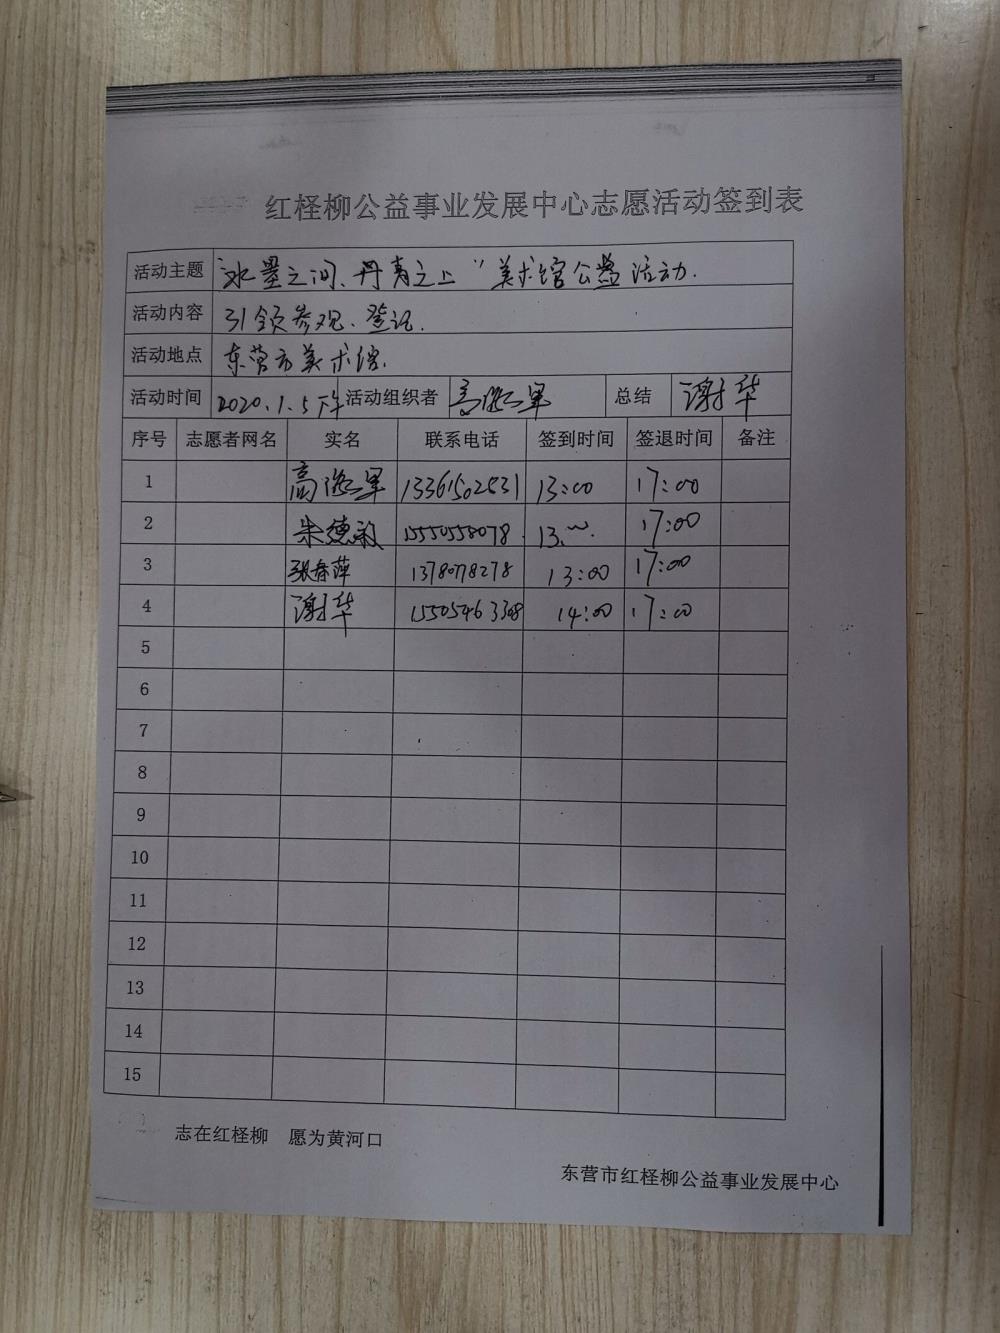 红柽柳公益事业发展中心志愿活动签到表
活动主题 "水墨之间、丹青之上"美术馆公益活动.
活动内容 引领参观、登记.
活动地点 东营市美术馆.
活动时间 2020.1.5下午 活动组织者 高 军 总结 谢华
序号 志愿者网名 实名 联系电话 签到时间 签退时间 备注
1 高 军 13361502531 13:00 17:00
2 朱德 15550558078 13: 17:00
3 张春萍 1378078278 13:00 17:00
4 谢华 15505463308 14:00 17:00
5
6
7
8
9
10
11
12
13
14
15
志在红柽柳 愿为黄河口
东营市红柽柳公益事业发展中心